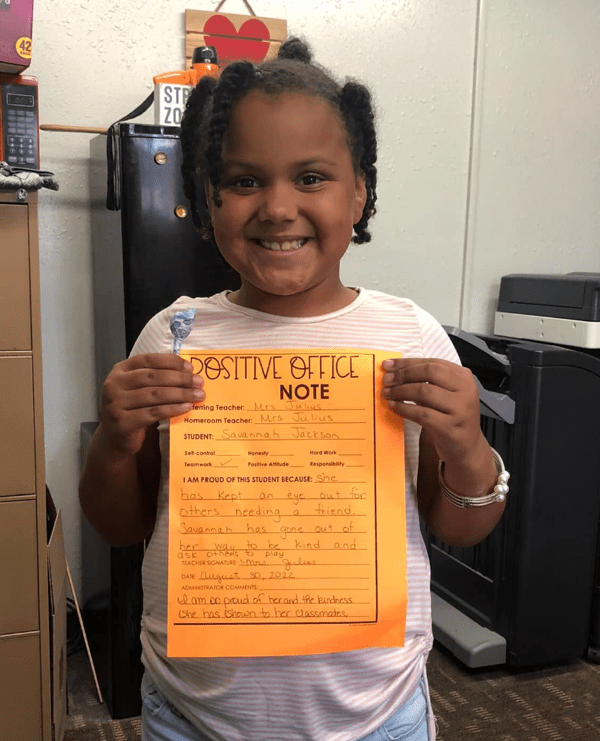 42
STR
ZO
POSITIVE OFFICE
NOTE
erring Teacher: Mrs Julius
Homeroom Teacher: Mrs Julius
STUDENT: Savannah Jackson
Self-control Honesty Hard Work
Teamwork ✓ Positive Attitude Responsibility
I AM PROUD OF THIS STUDENT BECAUSE: She
has kept an eye out for
others needing a friend.
Savannah has gone out of
her way to be kind and
ask others to play
TEACHER SIGNATURE: Mrs. Julius
DATE: August 30, 2022
ADMINISTRATOR COMMENTS:
I am so proud of her and the kindness
she has shown to her classmates.